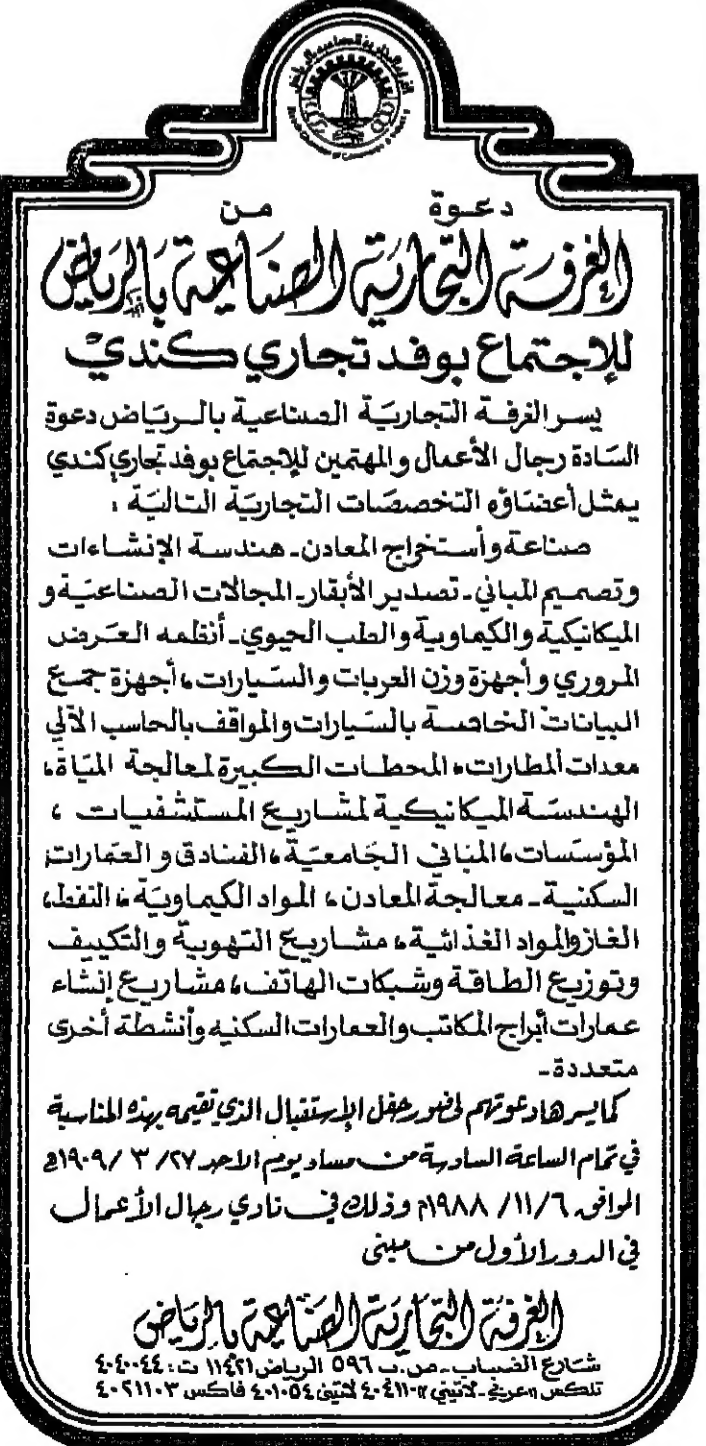 دعوة من
الغرفة التجارية الصناعية بالرياض
للاجتماع بوفد تجاري كندي
يسر الغرفة التجارية الصناعية بالرياض دعوة
السادة رجال الأعمال والمهتمين للاجتماع بوفد تجاري كندي
يمثل أعضاؤه التخصصات التجارية التالية :
صناعة وأستخراج المعادن ـ هندسة الإنشاءات
وتصميم المباني ـ تصدير الأبقار ـ المجالات الصناعية و
الميكانيكية والكهاوية والطب الحيوي ـ أنظمه العرض
المروري وأجهزة وزن العربات والسيارات ، أجهزة جمع
البيانات الخاصة بالسيارات والمواقف بالحاسب الآلي
معدات المطارات ، المحطات الكبيرة لمعالجة المياة ،
الهندسة الميكانيكية لمشاريع المستشفيات ،
المؤسسات ، المباني الجامعية ، الفنادق والعمارات
السكنية ـ معالجة المعادن ، المواد الكيماوية ، النفط ،
الغاز والمواد الغذائية ، مشاريع التهوية والتكييف
وتوزيع الطاقة وشبكات الهاتف ، مشاريع إنشاء
عمارات أبراج المكاتب والعمارات السكنيه وأنشطة أخرى
متعددة ـ
كما يسرها دعوتهم لحضور حفل الإستقبال الذي تقيمه بهذه المناسبة
في تمام الساعة السادسة من مساء يوم الاحد ٢٧/ ٣ /١٩٠٩ه
الموافق ١١/٦/ ١٩٨٨م وذلك في نادي رجال الأعمال
في الدور الأول من مبنى
الغرفة التجارية الصناعية بالرياض
شارع الضباب ـ ص.ب ٥٩٦ الرياض ١١٤٢١ ت: ٤٠٤٠٠٤٤
لاتيني ٤٠١٠٥٤ فاكس ٤٠٢١١٠٣